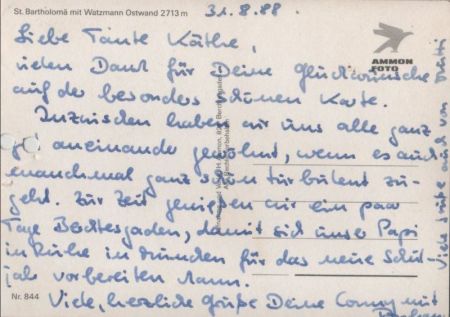 St. Bartholomä mit Watzmann Ostwand 2713 m
31.8.88.
Liebe Tante Käthe,
vielen Dank für Deine Glückwünsche
auf der besonders schönen Karte.
Inzwischen haben wir uns alle ganz
gut aneinander gewöhnt, wenn es auch
manchmal ganz schön turbulent zu-
geht. Zur Zeit genießen wir ein paar
Tage Berchtesgaden, damit sich unser Papi
in Ruhe in München für das neue Schul-
jahr vorbereiten kann.
Viele, herzliche Grüße Deine Conny mit
Viele Grüße auch von
AMMON
FOTO
Nr. 844